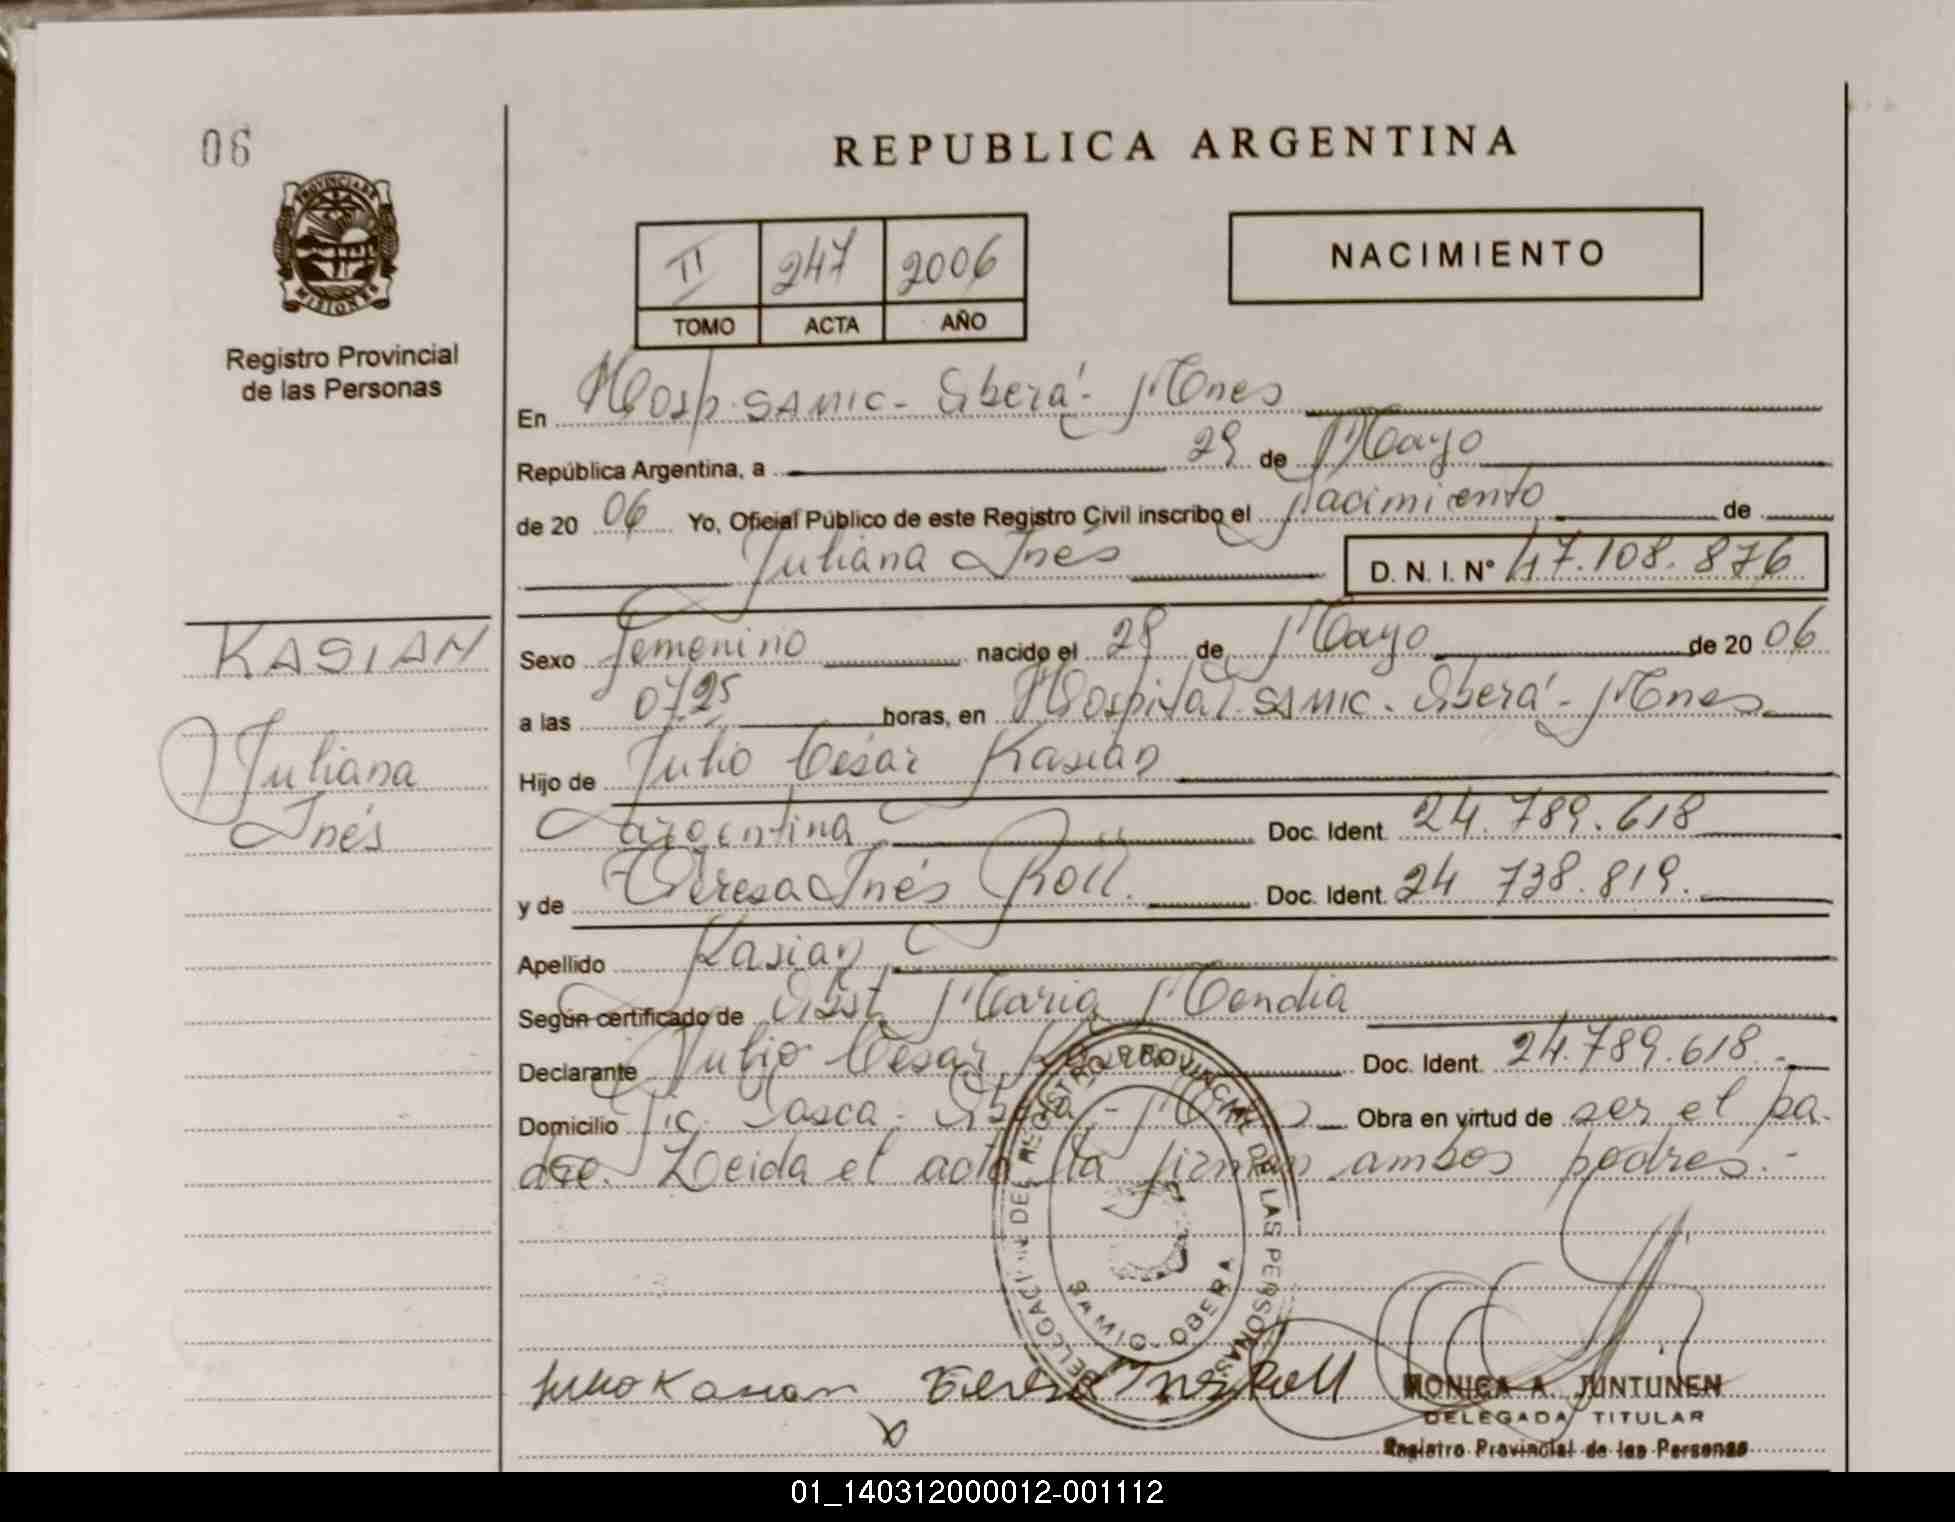 06
REPUBLICA ARGENTINA
PROVINCIA DE
MISIONES
Registro Provincial
de las Personas
II 247 2006
TOMO ACTA AÑO
NACIMIENTO
En Hosp. SAMIC - Oberá - Mnes
República Argentina, a 29 de Mayo
de 20 06 Yo, Oficial Público de este Registro Civil inscribo el Nacimiento de
Juliana Inés D. N. I. N° 47.108.876
KASIAN
Juliana
Inés
Sexo femenino nacido el 28 de Mayo de 20 06
a las 0725 horas, en Hospital SAMIC - Oberá - Mnes
Hijo de Julio César Kasian
Argentina Doc. Ident. 24.789.618
y de Teresa Inés Roll. Doc. Ident. 24 738.819.
Apellido Kasian
Según certificado de Obst. Maria Mendia
Declarante Julio César Doc. Ident. 24.789.618.-
Domicilio Pic. Oberá - Mnes Obra en virtud de ser el pa-
dre. Leida el acta la firman ambos padres.-
DELEGACION DEL REGISTRO PROVINCIAL DE LAS PERSONAS
OBERA
Julio Kasian Teresa Inés Roll
MONICA A. JUNTUNEN
DELEGADA TITULAR
Registro Provincial de las Personas
01_140312000012-001112